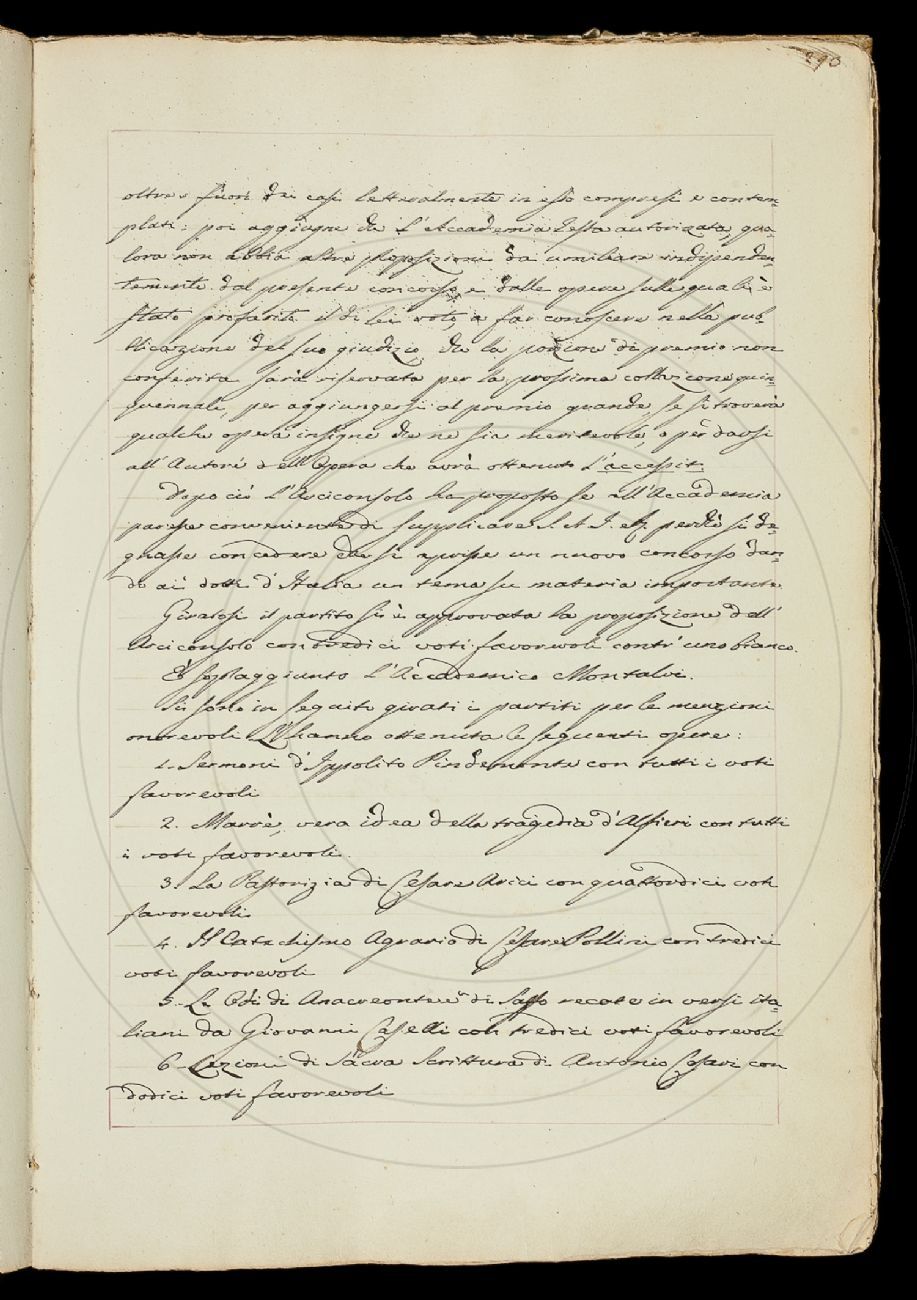 290
oltre e fuori dei casi letteralmente in esso compresi e contem=
plati: poi aggiugne che l'Accademia è essa autorizzata, qua=
lora non abbia altre proposizioni da umiliare indipenden=
temente dal presente concorso, e dalle opere sulle quali è
stato proferito il di lei voto, a far conoscere nella pub=
blicazione del suo giudizio, che la porzione di premio non
conferita sarà riservata per la prossima collazione quin=
quennale, per aggiungersi al premio grande, se si troverà
qualche opera insigne che ne sia meritevole o per darsi
all'Autore dell'Opera che avrà ottenuto l'accessit.
Dopo ciò l'Arciconsolo ha proposto se all'Accademia
paresse conveniente di supplicare S. A. I. perchè si de=
gnasse concedere che si aprisse un nuovo concorso dan=
do ai dotti d'Italia un tema su materia importante.
Giratosi il partito si è approvata la proposizione dell'
Arciconsolo con tredici voti favorevoli contr'uno bianco.
È sopraggiunto l'Accademico Montalvi.
Si sono in seguito girati i partiti per le menzioni
onorevoli. L'hanno ottenuta le seguenti opere:
1. Sermoni d'Ippolito Pindemonte con tutti i voti
favorevoli
2. Marrè, vera idea della tragedia d'Alfieri con tutti
i voti favorevoli.
3. La Pastorizia di Cesare Arici con quattordici voti
favorevoli
4. Il Catechismo Agrario di Cesare Pollini con tredici
voti favorevoli
5. Le Odi di Anacreonte e di Saffo recate in versi ita=
liani da Giovanni Caselli con tredici voti favorevoli
6. Lezioni di Sacra Scrittura di Antonio Cesari con
dodici voti favorevoli